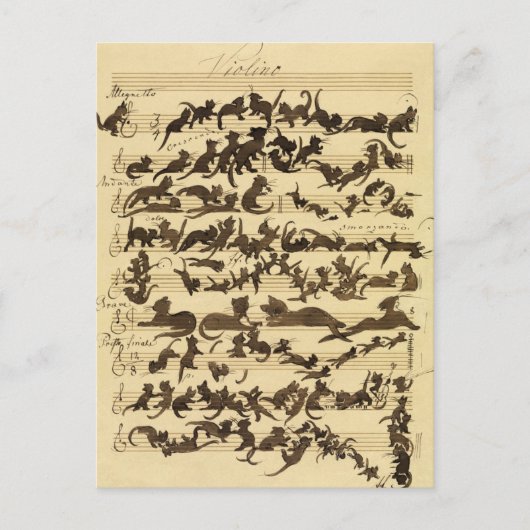 Violino
Allegretto
3
4
Crescendo
Andante
dolce
smorzando.
ff.
Grave
8
Presto finale
12
8
p.
ff